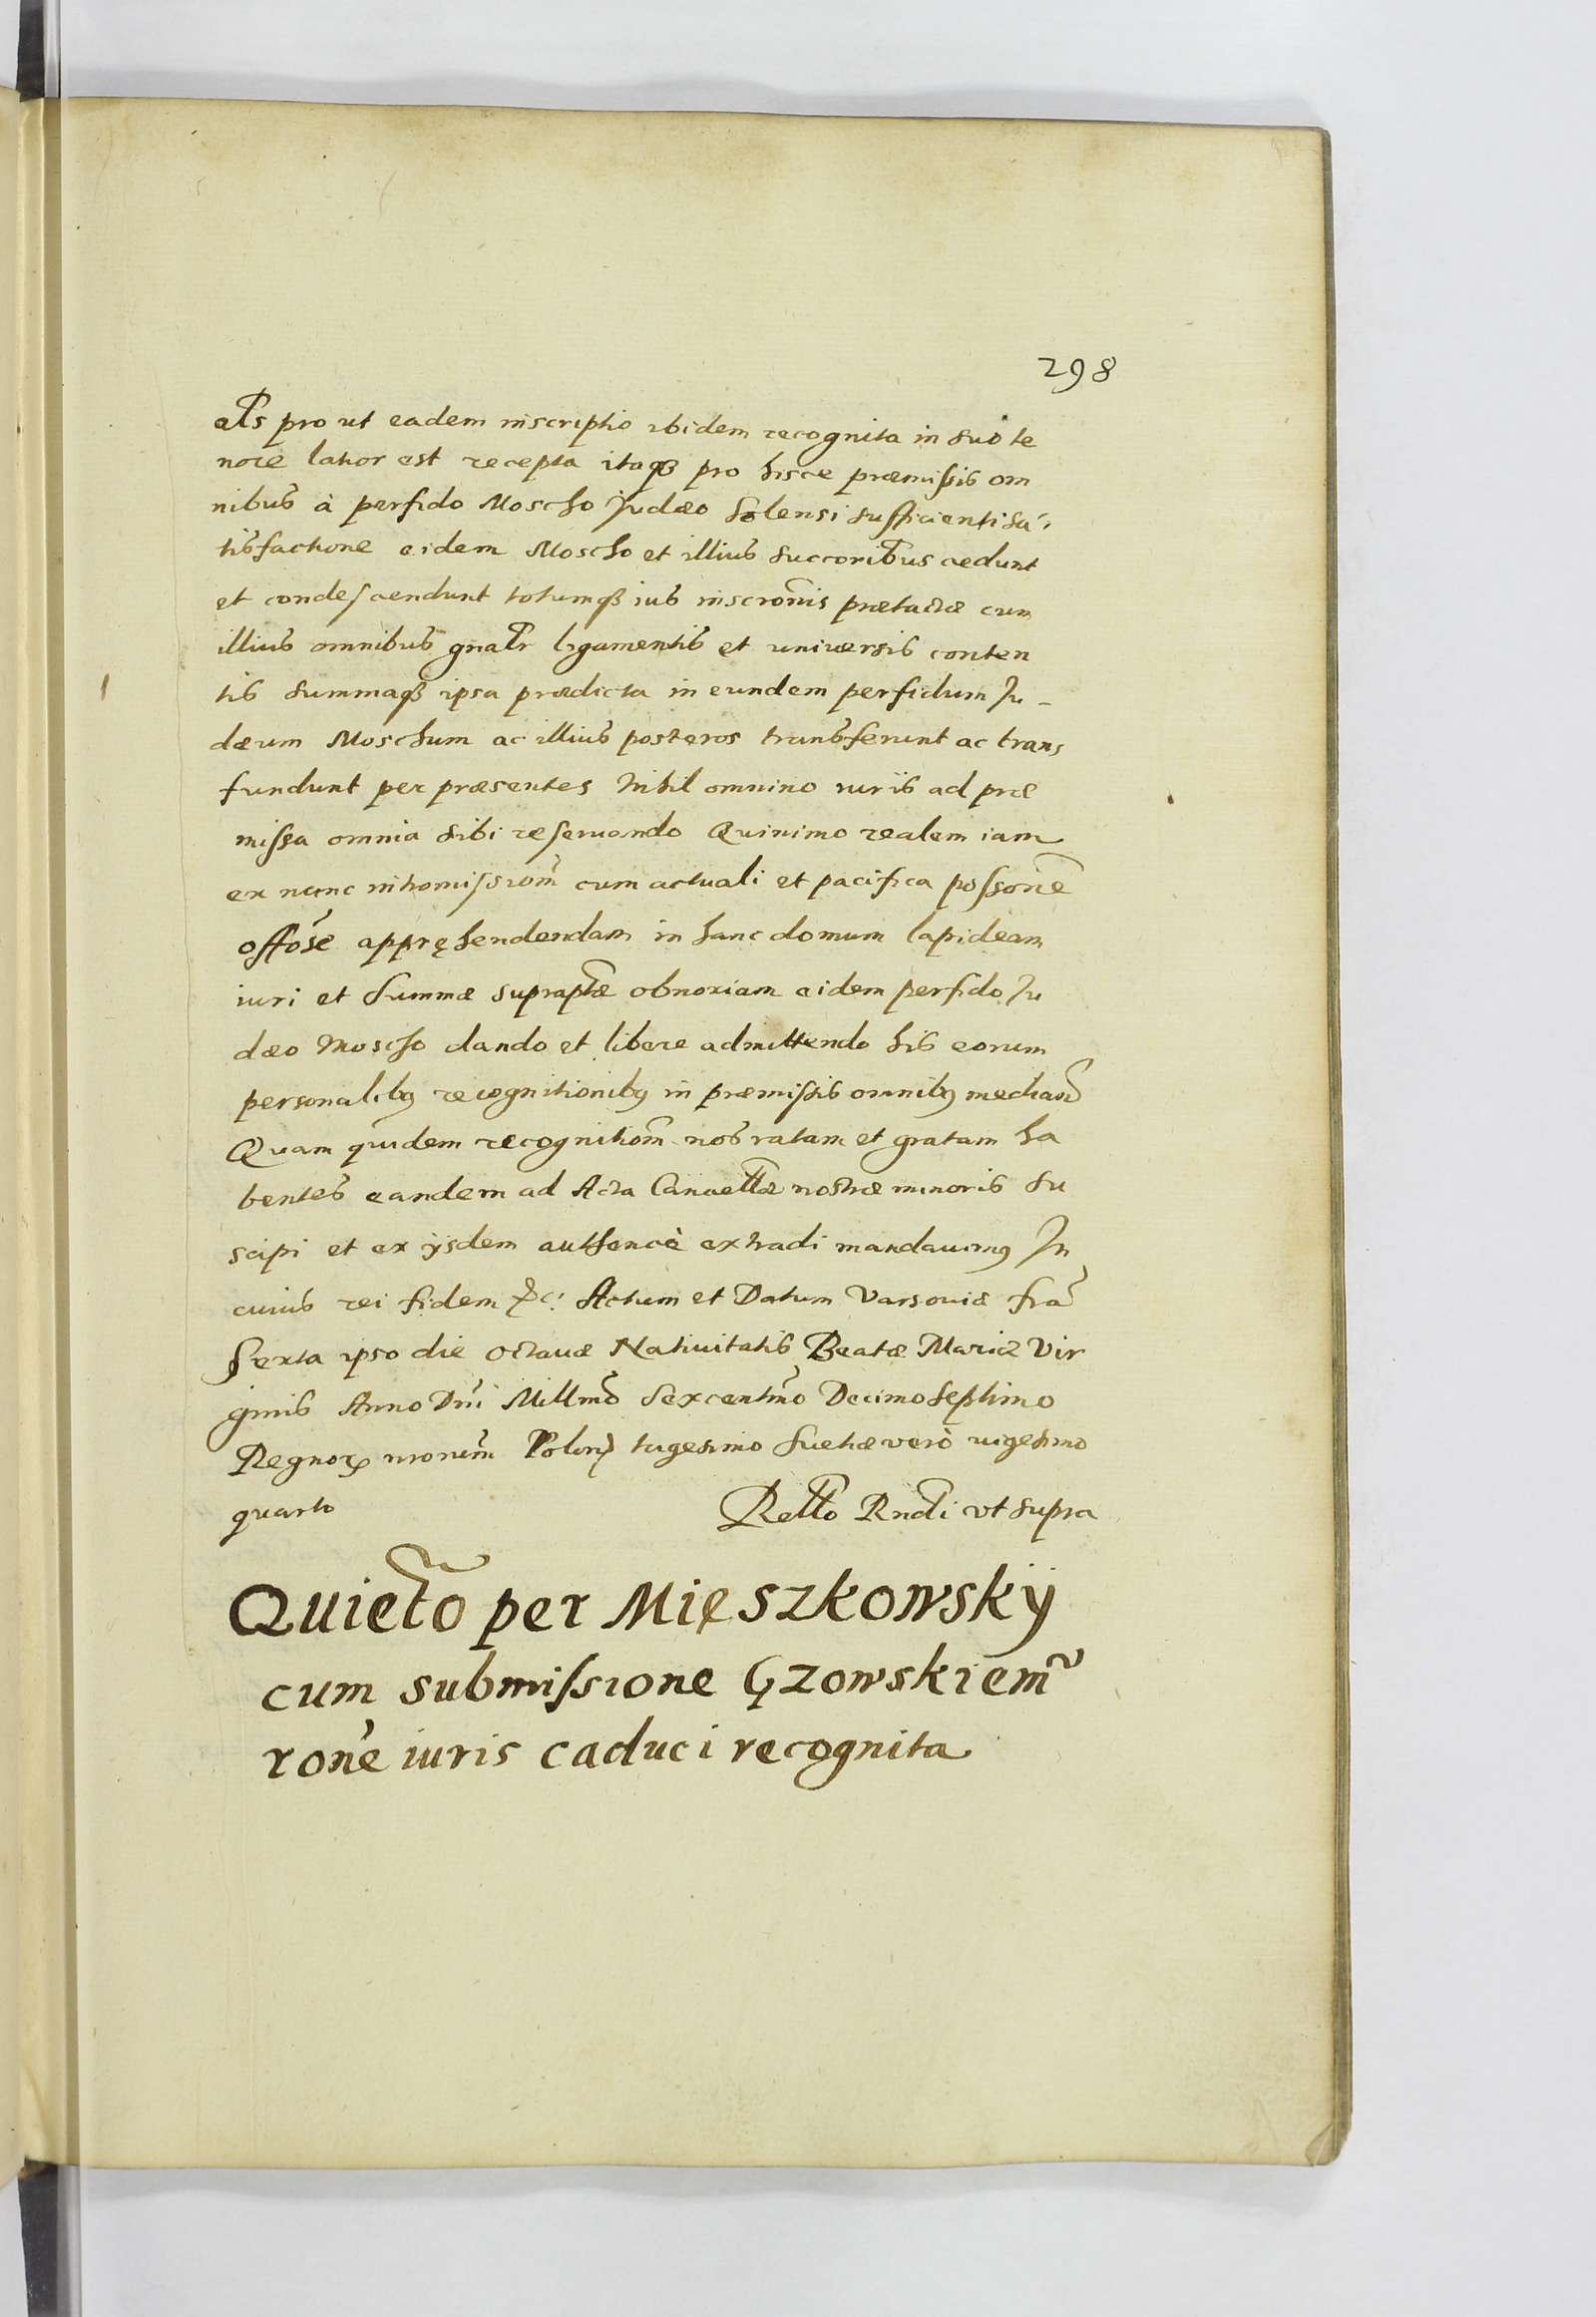 298
als pro ut eadem inscriptio ibidem recognita in suo te
nore latior est recepta itaq3 pro hisce præmissis om
nibus à perfido Moscho Judæo Solensi sufficienti sa
tisfactione eidem Moscho et illius succoribus cedunt
et condescendunt totumq3 ius inscronis prætactæ cum
illius omnibus gnalr ligamentis et universis conten
tis summaq3 ipsa prædicta in eundem perfidum Ju-
dæum Moschum ac illius posteros transferunt ac trans
fundunt per præsentes Nihil omnino iuris ad præ
missa omnia sibi reservando Quinimo realem iam
ex nunc intromissiom cum actuali et pacifica possone
offose apprehendendam in hanc domum lapideam
iuri et summæ supraptæ obnoxiam eidem perfido Ju
dæo Moscho dando et libere admittendo his eorum
personalibq recognitionibq in præmissis omnibq median
Quam quidem recognitiom nos ratam et gratam ha
bentes eandem ad Acta Cancellæ nostræ minoris su
scipi et ex ijsdem authencè extradi mandavimq In
cuius rei fidem &c: Actum et Datum Varsoviæ fra
sexta ipso die octavæ Nativitatis Beatæ Mariæ Vir
ginis Anno Dni Millmo sexcentmo Decimo septimo
Regnorq nrorum Polon trigesimo Suetiæ verò vigesimo
quarto
Rello Rndi vt supra
Quietto per Mięszkowskÿ
cum submissione Gzowskiemu
rone iuris caduci recognita